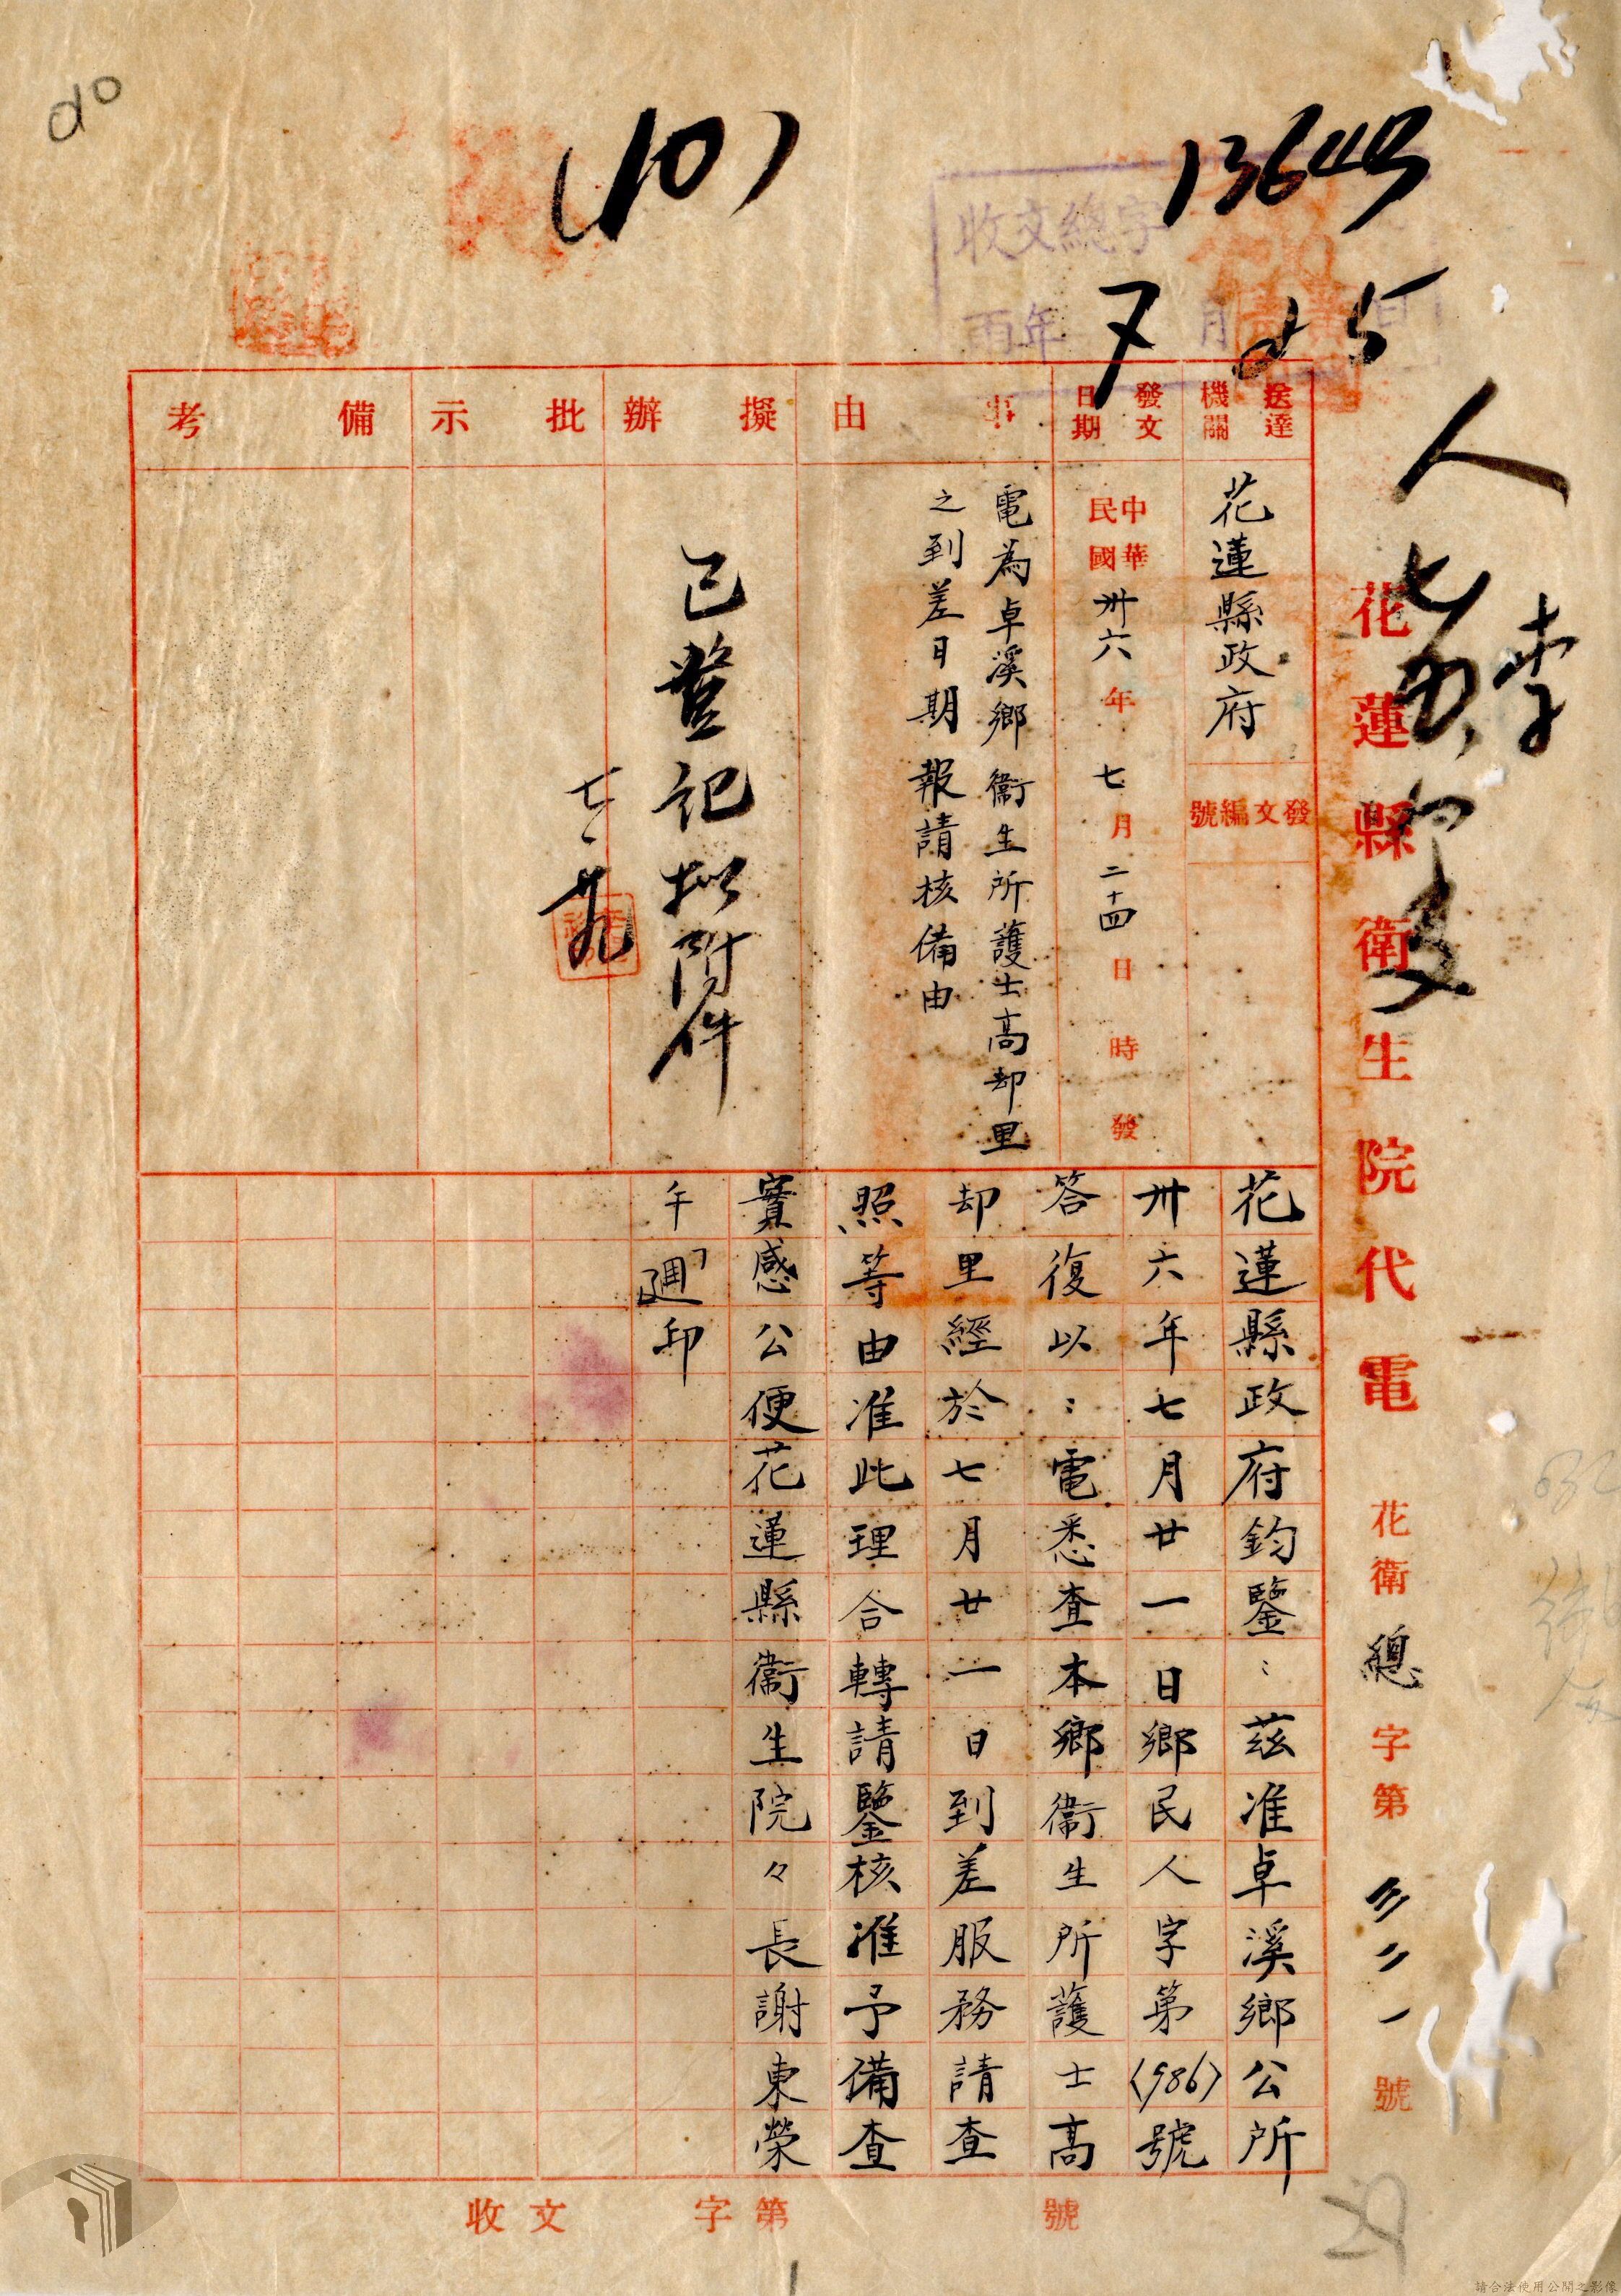 do
(10)
13649
收文總字
年 7月25日
人
李
花蓮縣衛生院代電 花衛總字第三二一號
送達機關
花蓮縣政府
發文編號
發文日期
中華民國卅六年七月二十四日 時發
事由
電為卓溪鄉衛生所護士高却里
之到差日期報請核備由
擬辦
已登記擬附件
七、廿九
批示
備考
花蓮縣政府鈞鑒：茲准卓溪鄉公所
卅六年七月廿一日鄉民人字第(986)號
答復以：電悉查本鄉衛生所護士高
却里經於七月廿一日到差服務請查
照等由准此理合轉請鑒核准予備查
實感公便花蓮縣衛生院々長謝東榮
午迴印
收文 字第 號
請合法使用公開之影像